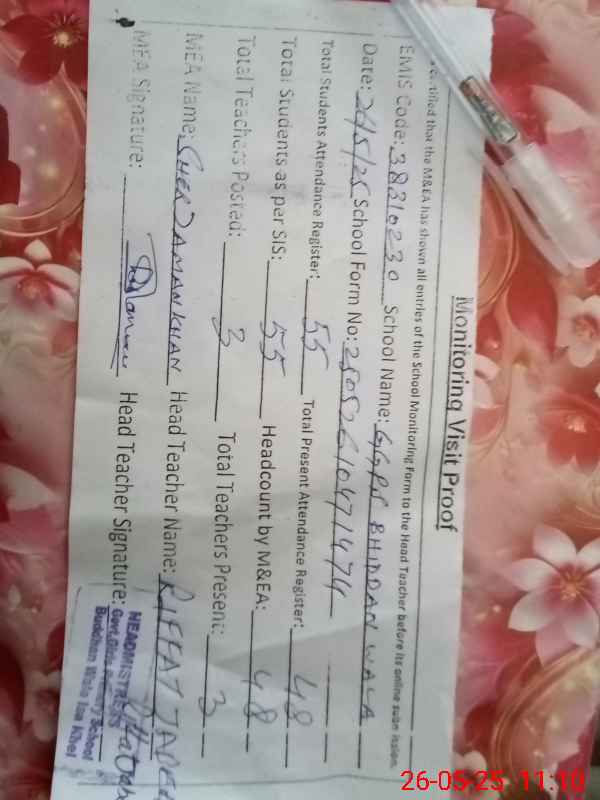 Monitoring Visit Proof
certified that the M&EA has shown all entries of the School Monitoring Form to the Head Teacher before its online submission.
EMIS Code: 38310230 School Name: GGPS BHIDDAN WALA
Date: 26/5/25 School Form No: 25052610471474
Total Students Attendance Register: 55 Total Present Attendance Register: 48
Total Students as per SIS: 55 Headcount by M&EA: 48
Total Teachers Posted: 3 Total Teachers Present: 3
MEA Name: SHER ZAMAN KHAN Head Teacher Name: RIFFAT
MEA Signature: Head Teacher Signature:
HEADMISTRESS
Govt. Girls Primary School
Buddhan Wala Isa Khel
26-05-25 11:10